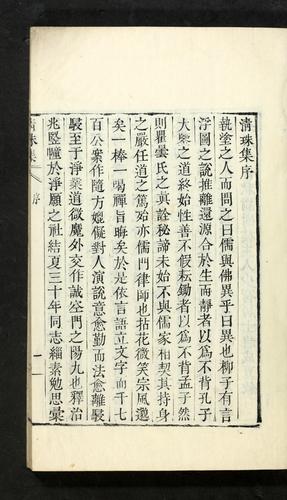 清珠集序
執塗之人而問之曰儒與佛異乎曰異也柳子有言
浮圖之說推離還源合於生而靜者以為不背孔子
大鑒之道終始性善不假耘鋤者以為不背孟子然
則瞿曇氏之眞詮秘諦未始不與儒家相契其持身
之嚴任道之篤始亦儒門律師也拈花微笑宗風邈
矣一棒一喝禪旨晦矣於是依言語立文字而千七
百公案作隨方嬈儗對人演說意愈勤而法愈離
至于淨業道微魔外交作誠空門之陽九也釋治
兆竪幢於淨願之社結夏三十年同志緇素勉思彙
清珠集
序
一